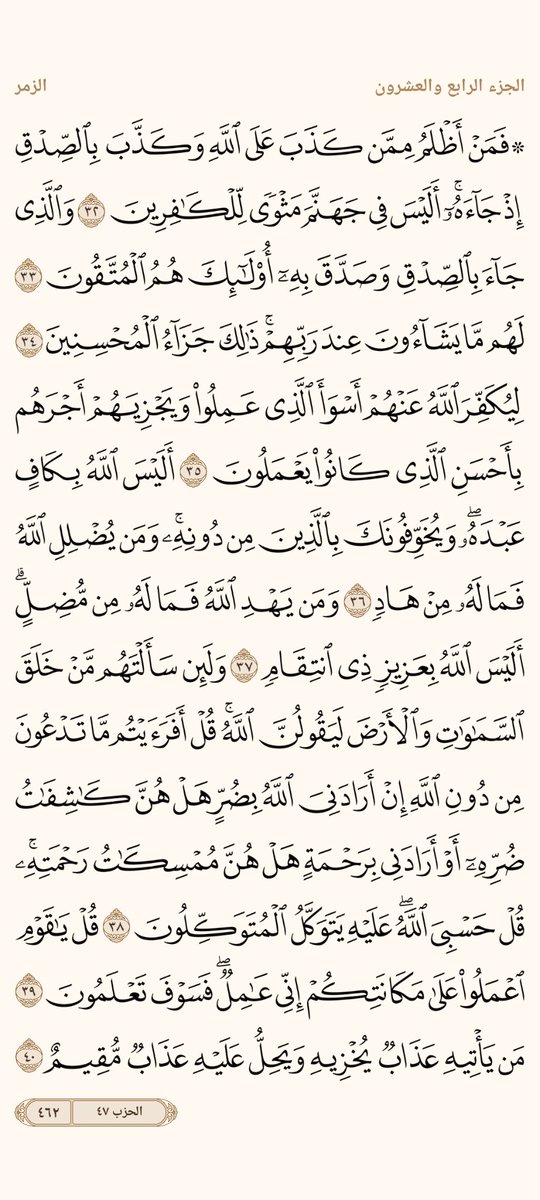 الزمر الجزء الرابع والعشرون
۞ فَمَنۡ أَظۡلَمُ مِمَّن كَذَبَ عَلَى ٱللَّهِ وَكَذَّبَ بِٱلصِّدۡقِ
إِذۡ جَآءَهُۥٓۚ أَلَيۡسَ فِي جَهَنَّمَ مَثۡوٗى لِّلۡكَٰفِرِينَ ٣٢ وَٱلَّذِي
جَآءَ بِٱلصِّدۡقِ وَصَدَّقَ بِهِۦٓ أُوْلَٰٓئِكَ هُمُ ٱلۡمُتَّقُونَ ٣٣
لَهُم مَّا يَشَآءُونَ عِندَ رَبِّهِمۡۚ ذَٰلِكَ جَزَآءُ ٱلۡمُحۡسِنِينَ ٣٤
لِيُكَفِّرَ ٱللَّهُ عَنۡهُمۡ أَسۡوَأَ ٱلَّذِي عَمِلُواْ وَيَجۡزِيَهُمۡ أَجۡرَهُم
بِأَحۡسَنِ ٱلَّذِي كَانُواْ يَعۡمَلُونَ ٣٥ أَلَيۡسَ ٱللَّهُ بِكَافٍ
عَبۡدَهُۥۖ وَيُخَوِّفُونَكَ بِٱلَّذِينَ مِن دُونِهِۦۚ وَمَن يُضۡلِلِ ٱللَّهُ
فَمَا لَهُۥ مِنۡ هَادٖ ٣٦ وَمَن يَهۡدِ ٱللَّهُ فَمَا لَهُۥ مِن مُّضِلٍّۗ
أَلَيۡسَ ٱللَّهُ بِعَزِيزٖ ذِي ٱنتِقَامٖ ٣٧ وَلَئِن سَأَلۡتَهُم مَّنۡ خَلَقَ
ٱلسَّمَٰوَٰتِ وَٱلۡأَرۡضَ لَيَقُولُنَّ ٱللَّهُۚ قُلۡ أَفَرَءَيۡتُم مَّا تَدۡعُونَ
مِن دُونِ ٱللَّهِ إِنۡ أَرَادَنِيَ ٱللَّهُ بِضُرٍّ هَلۡ هُنَّ كَٰشِفَٰتُ
ضُرِّهِۦٓ أَوۡ أَرَادَنِي بِرَحۡمَةٍ هَلۡ هُنَّ مُمۡسِكَٰتُ رَحۡمَتِهِۦۚ
قُلۡ حَسۡبِيَ ٱللَّهُۖ عَلَيۡهِ يَتَوَكَّلُ ٱلۡمُتَوَكِّلُونَ ٣٨ قُلۡ يَٰقَوۡمِ
ٱعۡمَلُواْ عَلَىٰ مَكَانَتِكُمۡ إِنِّي عَٰمِلٞۖ فَسَوۡفَ تَعۡلَمُونَ ٣٩
مَن يَأۡتِيهِ عَذَابٞ يُخۡزِيهِ وَيَحِلُّ عَلَيۡهِ عَذَابٞ مُّقِيمٌ ٤٠
الحزب ٤٧ ٤٦٢